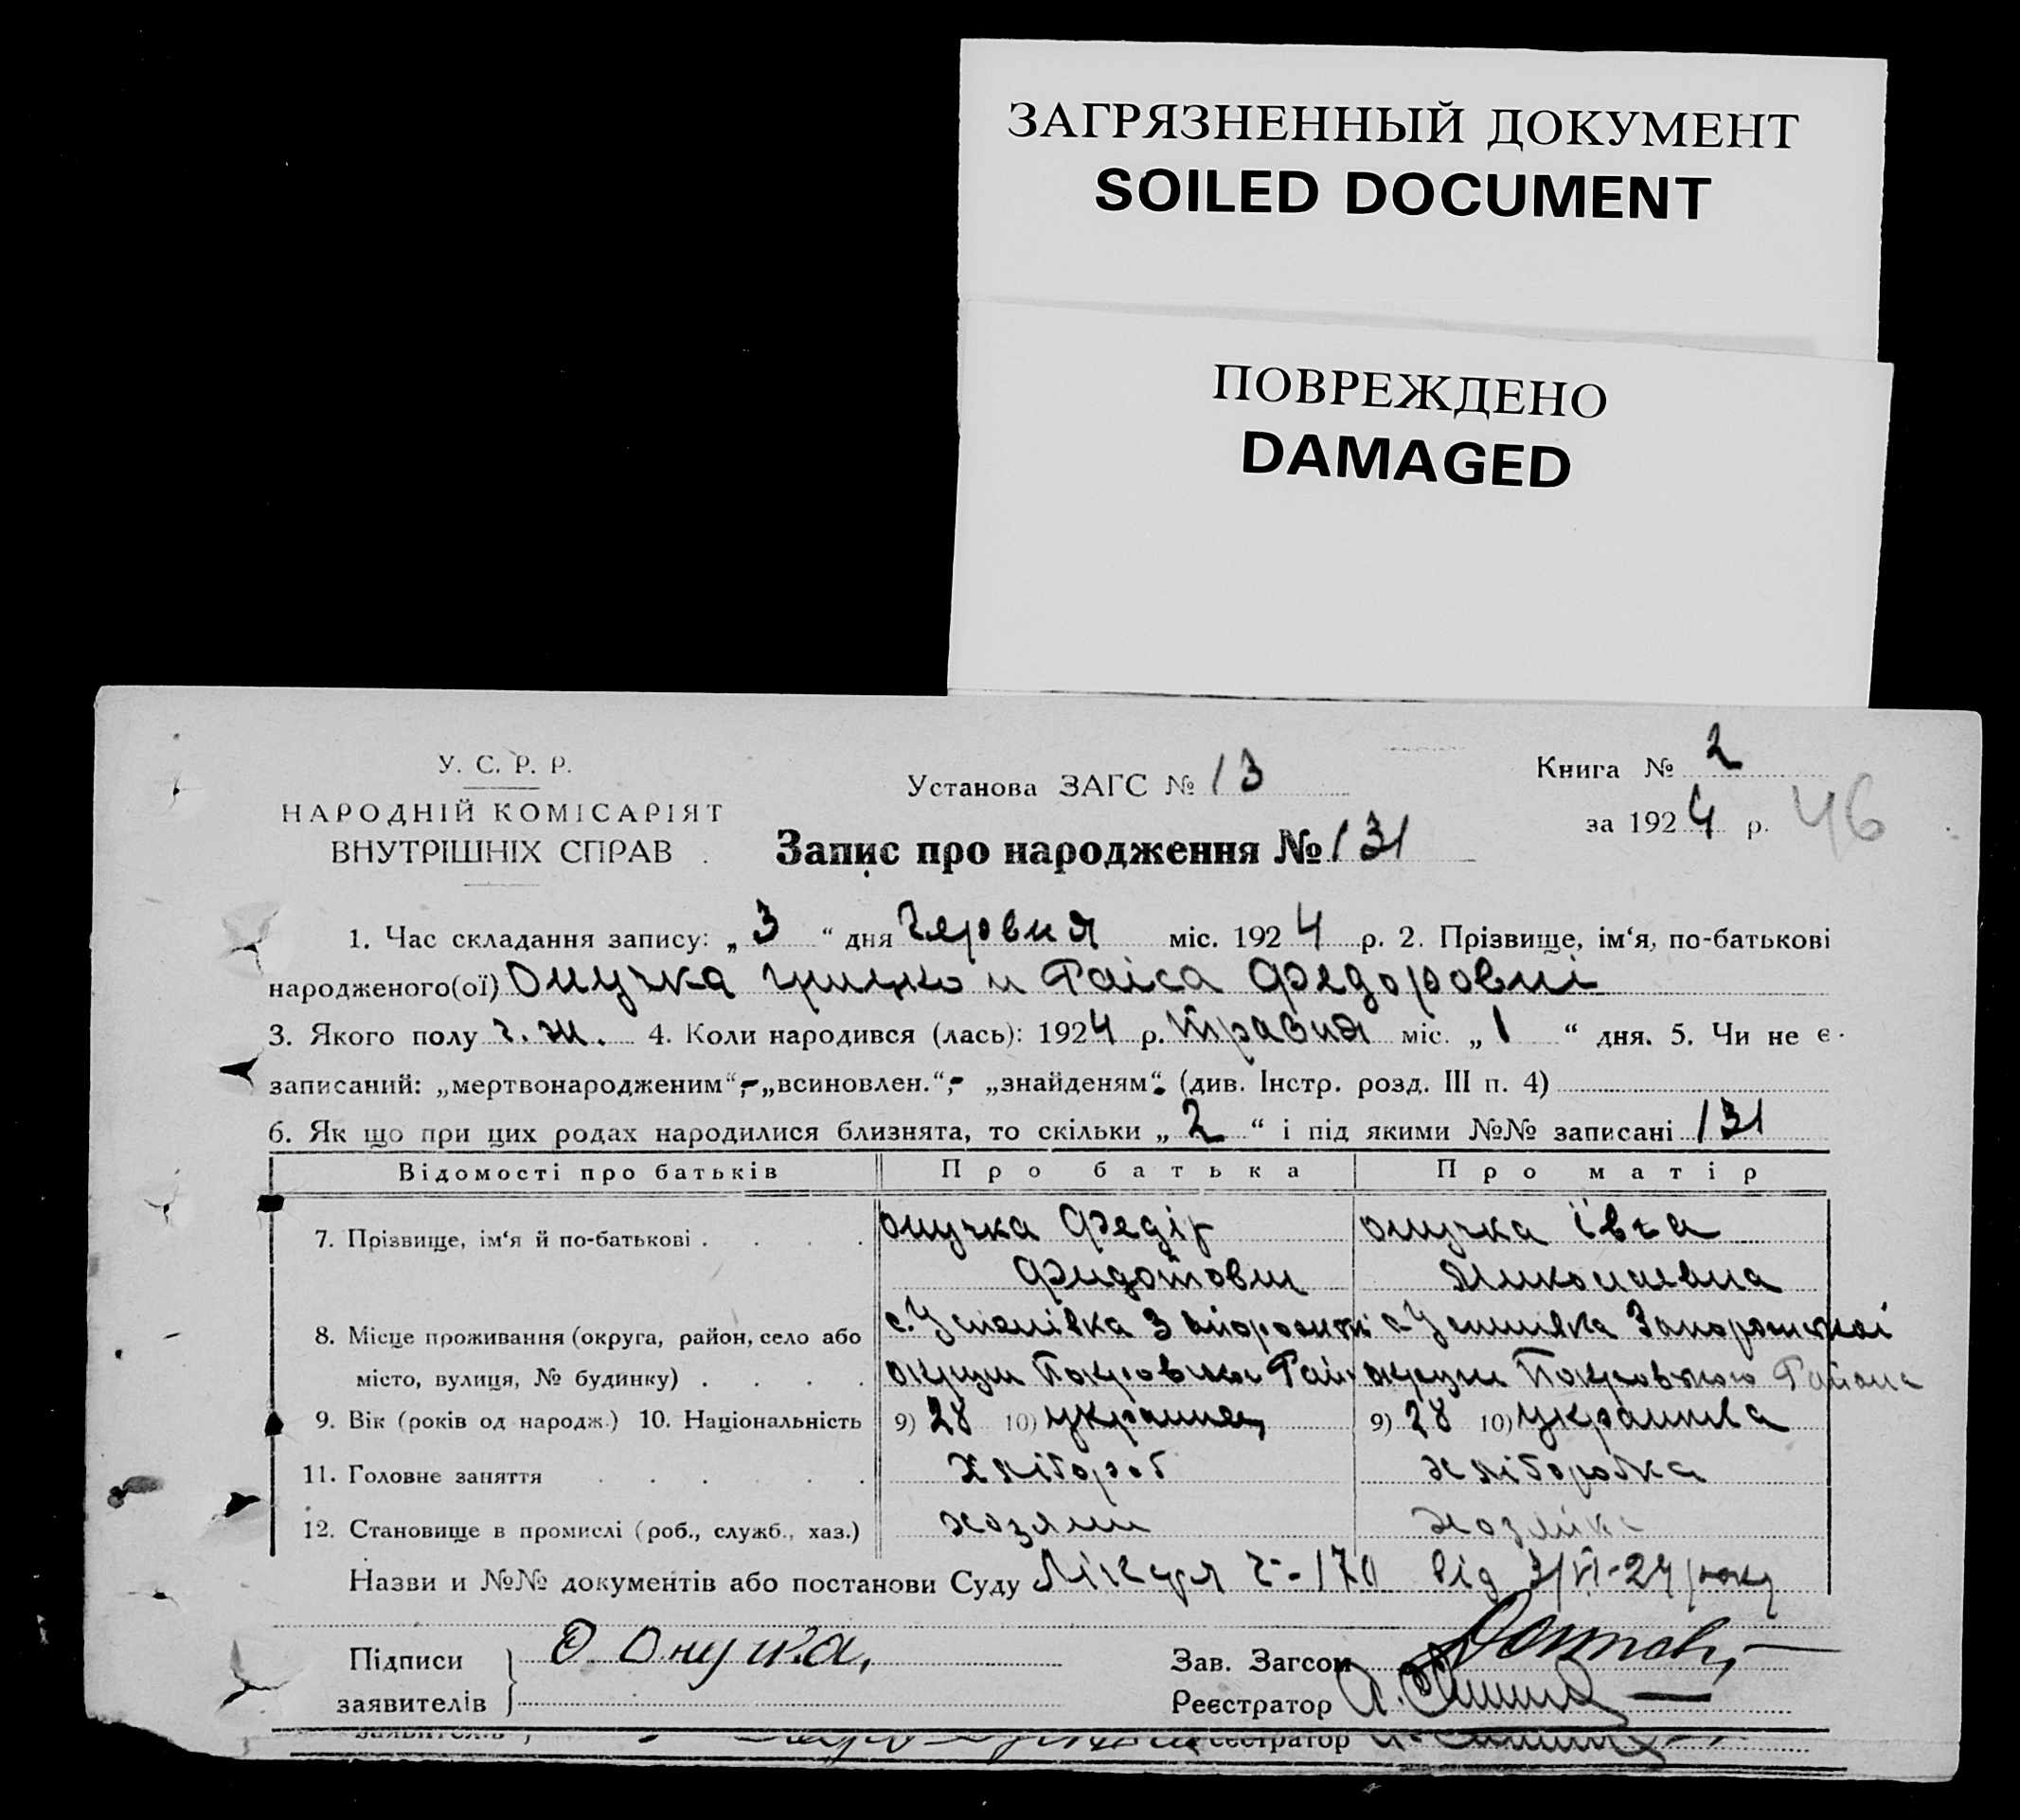 ЗАГРЯЗНЕННЫЙ ДОКУМЕНТ
SOILED DOCUMENT
ПОВРЕЖДЕНО
DAMAGED
У. С. Р. Р.
НАРОДНІЙ КОМІСАРІЯТ
ВНУТРІШНІХ СПРАВ
Установа ЗАГС № 13
Книга № 2
за 1924 р. 46
Запис про народження № 131
1. Час складання запису: „ 3 “ дня червня міс. 1924 р. 2. Прізвище, ім‘я, по-батькові
народженого(ої) Онучка Грицко и Раіса Федоровні
3. Якого полу ч. ж. 4. Коли народився (лась): 1924 р. травня міс. „ 1 “ дня. 5. Чи не є
записаний: „мертвонародженим“,-„всиновлен.“,- „знайденям“. (див. Інстр. розд. III п. 4)
6. Як що при цих родах народилися близнята, то скільки „ 2 “ і під якими №№ записані 131
Відомості про батьків Про батька Про матір
7. Прізвище, ім‘я й по-батькові . . . . онучка Федір онучка Івга
Фидотович Миколаевна
8. Місце проживання (округа, район, село або с. Успенівка с. Успенівка Запорожской
місто, вулиця, № будинку) . . . . округи Покровського Рай округи Покровского Района
9. Вік (років од народж.) 10. Національність 9) 28 10) українец 9) 28 10) українка
11. Головне заняття . . . . . Хлібороб хліборобка
12. Становище в промислі (роб., служб., хаз.) хозяин хозяйка
Назви и №№ документів або постанови Суду ч-170 від 3/VI-24 року
Підписи заявителів } Онучка. Зав. Загсом
Реєстратор
заявителів Реєстратор